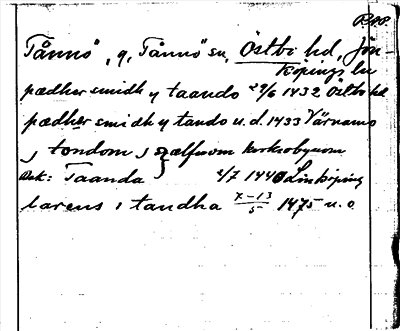 RAP.
Tånnö, g, Tånnö sn, Östbo hd, Jön
köpings ln
pædher smidh y taando 29/6 1432 Östbo hd
pædher smidh y tando u.d. 1433 Värnamo
j tondom j sælfwom kirkiobynom
Bet: Taanda 2/7 1440 Linköping
larens i tandha 7-13/5 1475 u.o